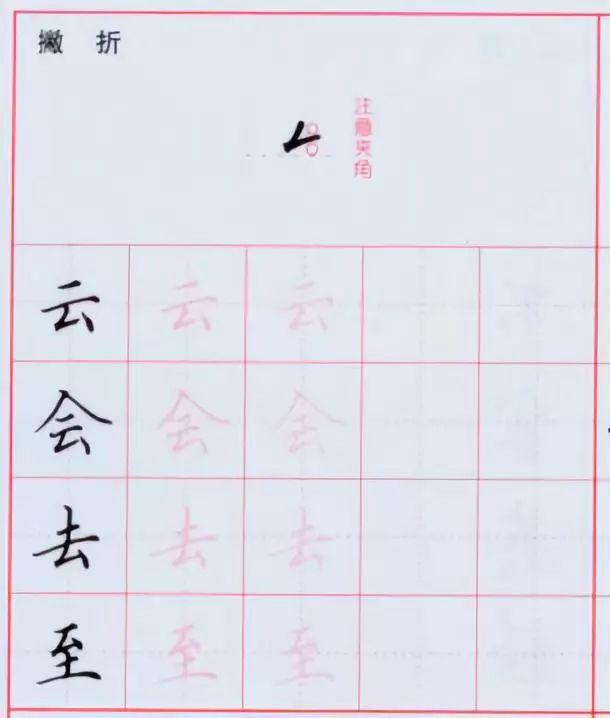 撇 折
注意夹角
云 云 云
会 会 会
去 去 去
至 至 至